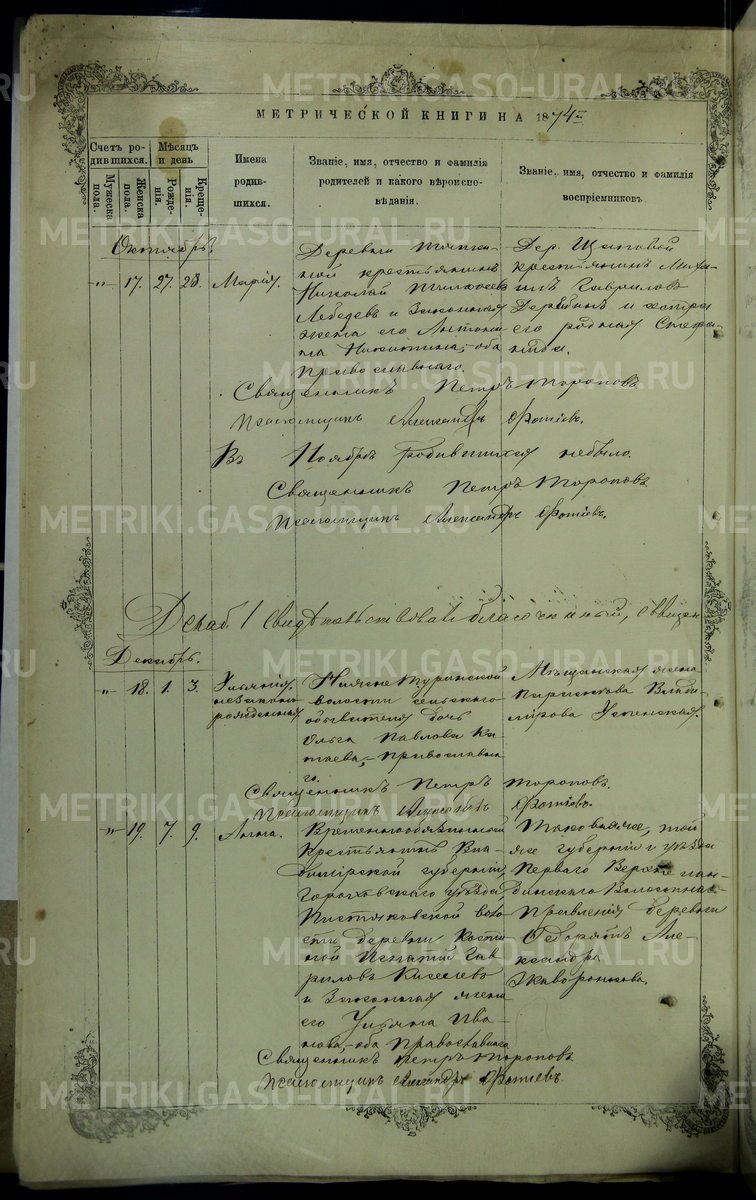 METRIKI.GASO-URAL.RU
МЕТРИЧЕСКОЙ КНИГИ НА 1874
Счетъ родившихся.
Мужеска пола.
Женска пола.
Мѣсяцъ и день
Рожденія.
Крещенія.
Имена родившихся.
Званіе, имя, отчество и фамилія родителей и какого вѣроисповѣданія.
Званіе, имя, отчество и фамилія воспріемниковъ.
Октябрь.
„ 17. 27. 28. Марія.
Деревни
крестьянинъ
Николай
Лебедевъ и Законная
жена его Антони
на Никитина, оба
православнаго.
Дер. Щиповой
крестьянинъ Миха
илъ Гавриловъ
Дерябинъ и сестра
его родная Степа
нида.
Священникъ Петръ Тороповъ
Псаломщикъ Александръ Фотіевъ.
Въ Ноябрѣ родившихся небыло.
Священникъ Петръ Тороповъ
Псаломщикъ Александръ Фотіевъ.
Декаб 1 свидѣтельствовалъ благочинный, священ
Декабрь.
„ 18. 1. 3. Ульянія.
незаконно
рожденная
Нижне Туринской
волости сельскаго
обывателя дочь
Ольга Павлова Ка
таева, Православна
го.
Мѣщанская жена
Влади
мірова Успенская.
Священникъ Петръ Тороповъ.
Псаломщикъ Александръ Фотіевъ.
„ 19. 7. 9. Анна.
Временнообязанной
Крестьянинъ Вла
димірской губерніи,
Гороховскаго уѣзда,
Пистяковской воло
сти деревни Кости
ной Игнатій Гав
риловъ Киселевъ
и Законная жена
его Ульяна Ива
нова, оба Православнаго
Таковаяже, той
же губерніи и уѣзда
Перваго Верхне лан
динскаго Волостнаго
Правленія деревни
Але
ксандра
Жаворонкова.
Священникъ Петръ Тороповъ
Псаломщикъ Александръ Фотіевъ.